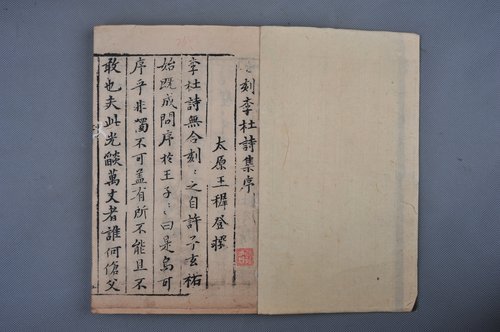 刻李杜詩集序
太原王穉登撰
李杜詩無合刻〻之自許子玄祐
始既成問序於王子〻曰是烏可
序乎非蜀不可盖有所不能且不
敢也夫此光燄萬丈者誰何傖父